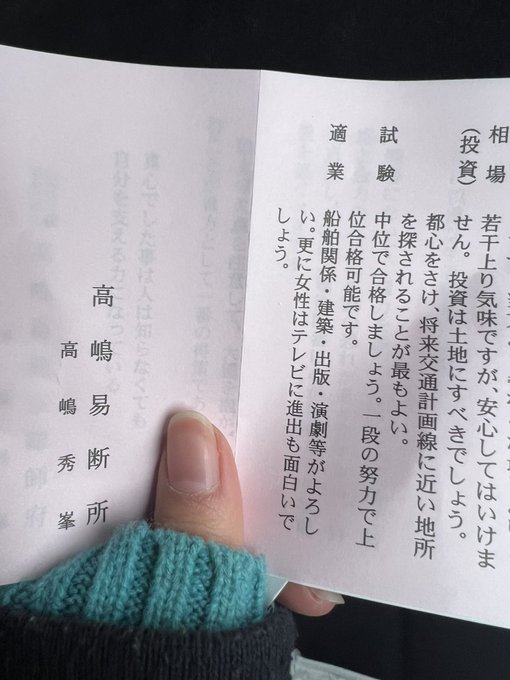 相場
(投資)
若干上り気味ですが、安心してはいけま
せん。投資は土地にすべきでしょう。
都心をさけ、将来交通計画線に近い地所
を探されることが最もよい。
試験
中位で合格しましょう。一段の努力で上
位合格可能です。
適業
船舶関係・建築・出版・演劇等がよろし
い。更に女性はテレビに進出も面白いで
しょう。
高嶋易断所
高嶋秀峯